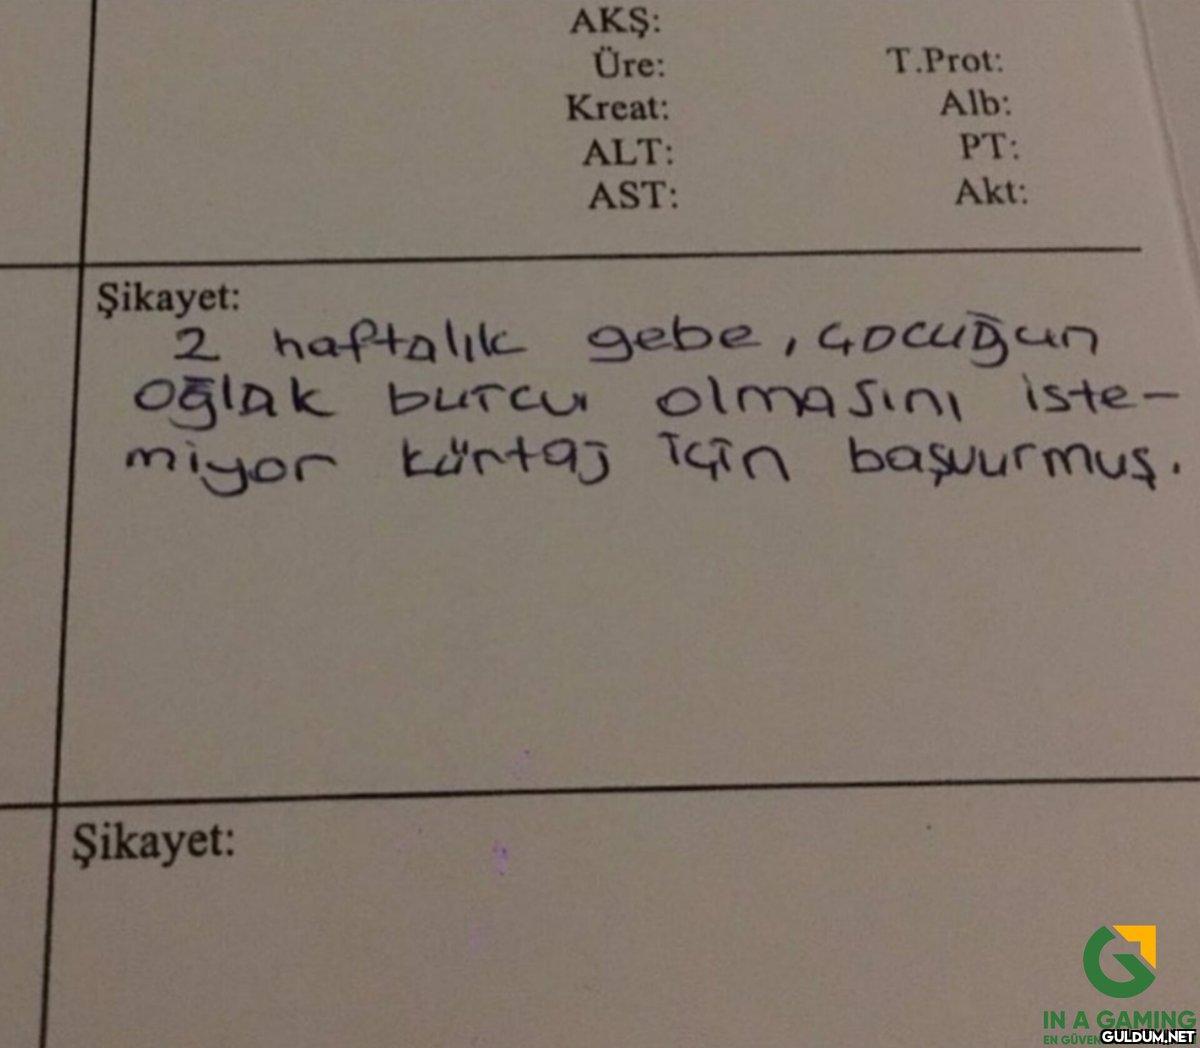 AKŞ:
Üre: T.Prot:
Kreat: Alb:
ALT: PT:
AST: Akt:
Şikayet:
2 haftalık gebe, çocuğun
oğlak burcu olmasını iste-
miyor kürtaj için başvurmuş.
Şikayet:
IN A GAMING
EN GÜVEN
GULDUM.NET